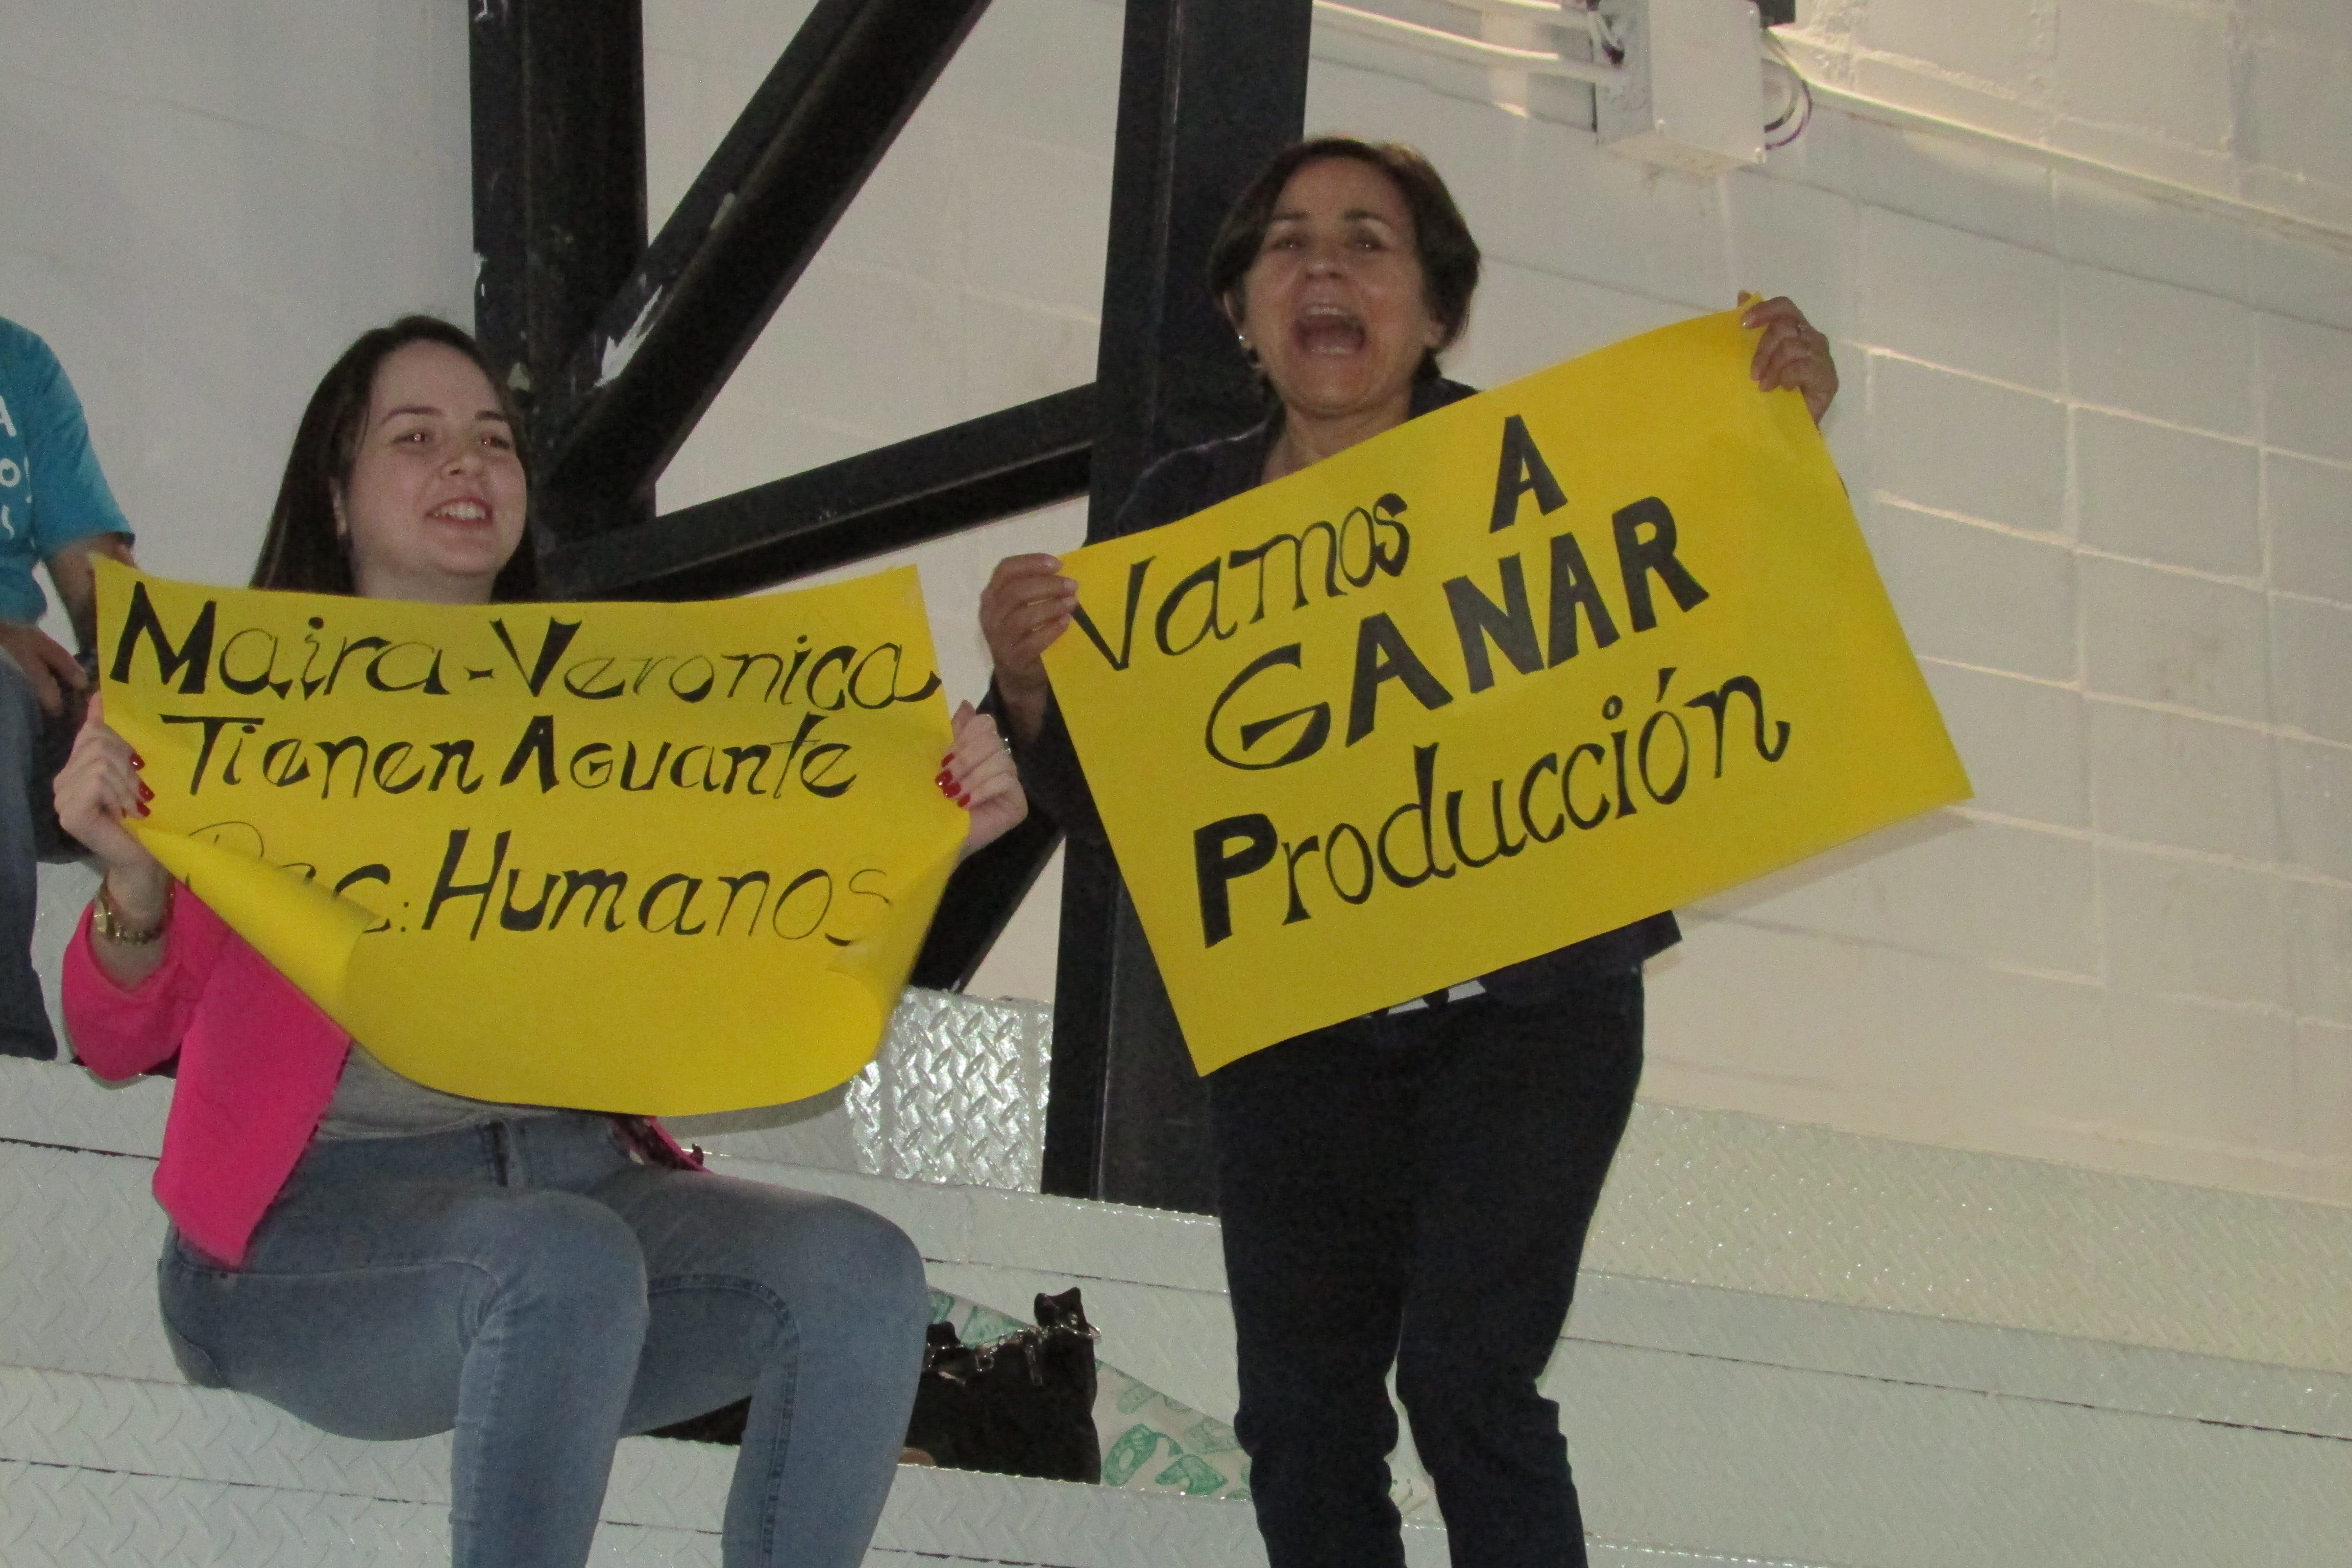 Maira-Veronica
Tienen Aguante
Rec: Humanos
Vamos A
GANAR
Producción